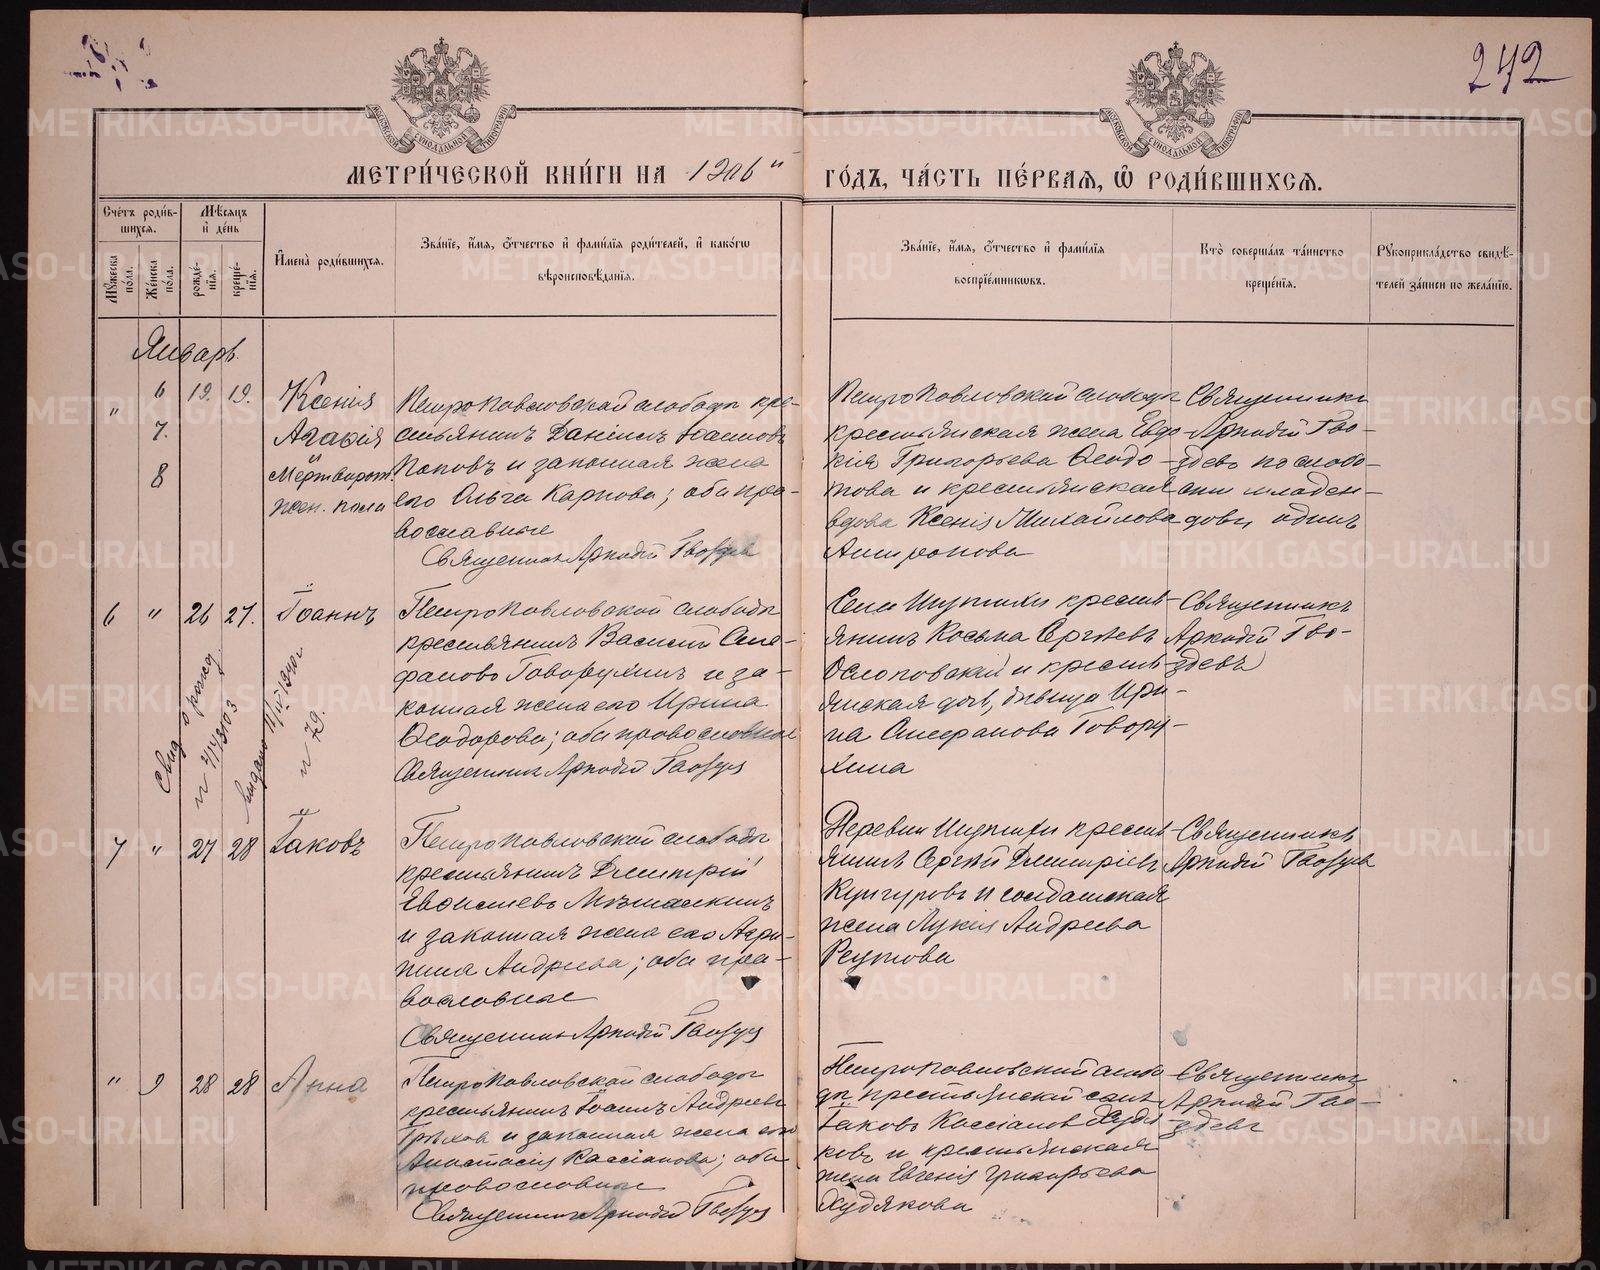 242
МОСКОВСКОЙ СѴНОДАЛЬНОЙ ТИПОГРАФІИ
МОСКОВСКОЙ СѴНОДАЛЬНОЙ ТИПОГРАФІИ
МЕТРИ́ЧЕСКОЙ КНИ́ГИ НА 1906 и
ГО́ДЪ, ЧА́СТЬ ПЕ́РВАѦ, Ѡ҆ РОДИ́ВШИХСѦ.
Сче́тъ роди́в-
шихсѧ.
Мꙋ́жеска по́ла.
Же́нска по́ла.
Мѣ́сѧцъ и҆ де́нь
рожде́-нїѧ.
креще́-нїѧ.
И҆мена̀ роди́вшихсѧ.
Зва́нїе, и҆́мѧ, ѻ҆́тчество и҆ фами́лїѧ роди́телей, и҆ како́гѡ
вѣроисповѣ́данїѧ.
Зва́нїе, и҆́мѧ, ѻ҆́тчество и҆ фами́лїѧ
воспрїе́мниковъ.
Кто̀ соверша́лъ та́инство
креще́нїѧ.
Рꙋкоприкла́дство свидѣ́-
телей за́писи по жела́нїю.
Январь
" 6 19. 19. Ксенія
7. Агафія
8 и Мертворожд.
жен. пола
Петропавловской слободы кре-
стьянинъ Даніилъ Іоанновъ
Поповъ и законная жена
его Ольга Карпова; оба пра-
вославные
Священник Аркадій Гвоздев
Петропавловской слободы
крестьянская жена Евдо-
кія Григорьева Ѳеодо-
това и крестьянская
вдова Ксенія Михайлова
Антропова
Священникъ
Аркадій Гво-
здевъ
одинъ
6 " 26 27. Іоаннъ
Петропавловской слободы
крестьянинъ Василій Сте-
фановъ Говорухинъ и за-
конная жена его Ирина
Ѳеодорова; оба православные
Священник Аркадій Гвоздев
Села Шутихи крестья-
янинъ Косьма Сергѣевъ
Ослоповский и крестья-
янская дочь, дѣвица Ири-
на Стефанова Говору-
хина
Священникъ
Аркадій Гво-
здевъ
Свид о рожд
выдано
1940г
N 79.
7 " 27 28 Іаковъ
Петропавловской слободы
крестьянинъ Димитрій
и законная жена его Агри-
пина Андреева; оба пра-
вославные
Священник Аркадій Гвоздев
Деревни Шутихи крестья-
янинъ Сергѣй Димитріевъ
Кунгуровъ и солдатская
жена Лукія Андреева
Реутова
Священникъ
Аркадій Гвоздевъ
" 9 28 28 Анна
Петропавловской слободы
крестьянинъ Іоаннъ Андреевъ
Грѣховъ и законная жена его
Анастасія Кассіанова; оба
православные
Священник Аркадій Гвоздев
Петропавловской слобо-
ды крестьянскій сынъ
Іаковъ Кассіановъ Худя-
ковъ и крестьянская
жена Евгенія Григорьева
Худякова
Священникъ
Аркадій Гво-
здевъ
METRIKI.GASO-URAL.RU